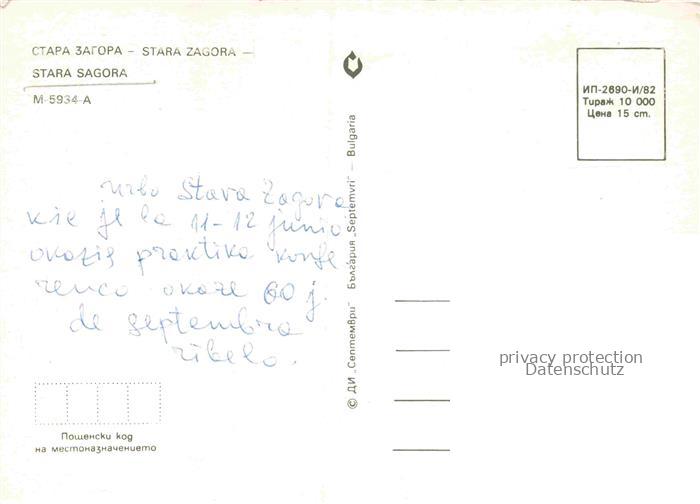 СТАРА ЗАГОРА – STARA ZAGORA –
STARA SAGORA
М-5934-А
ИП-2690-И/82
Тираж 10 000
Цена 15 ст.
urbo Stara Zagora
kie je la 11-12 junio
okazis praktika konfe
renco okaze 60 j.
de septembra
ribelo.
© ДИ „Септември" България „Septemvri" – Bulgaria
privacy protection
Datenschutz
Пощенски код
на местоназначението